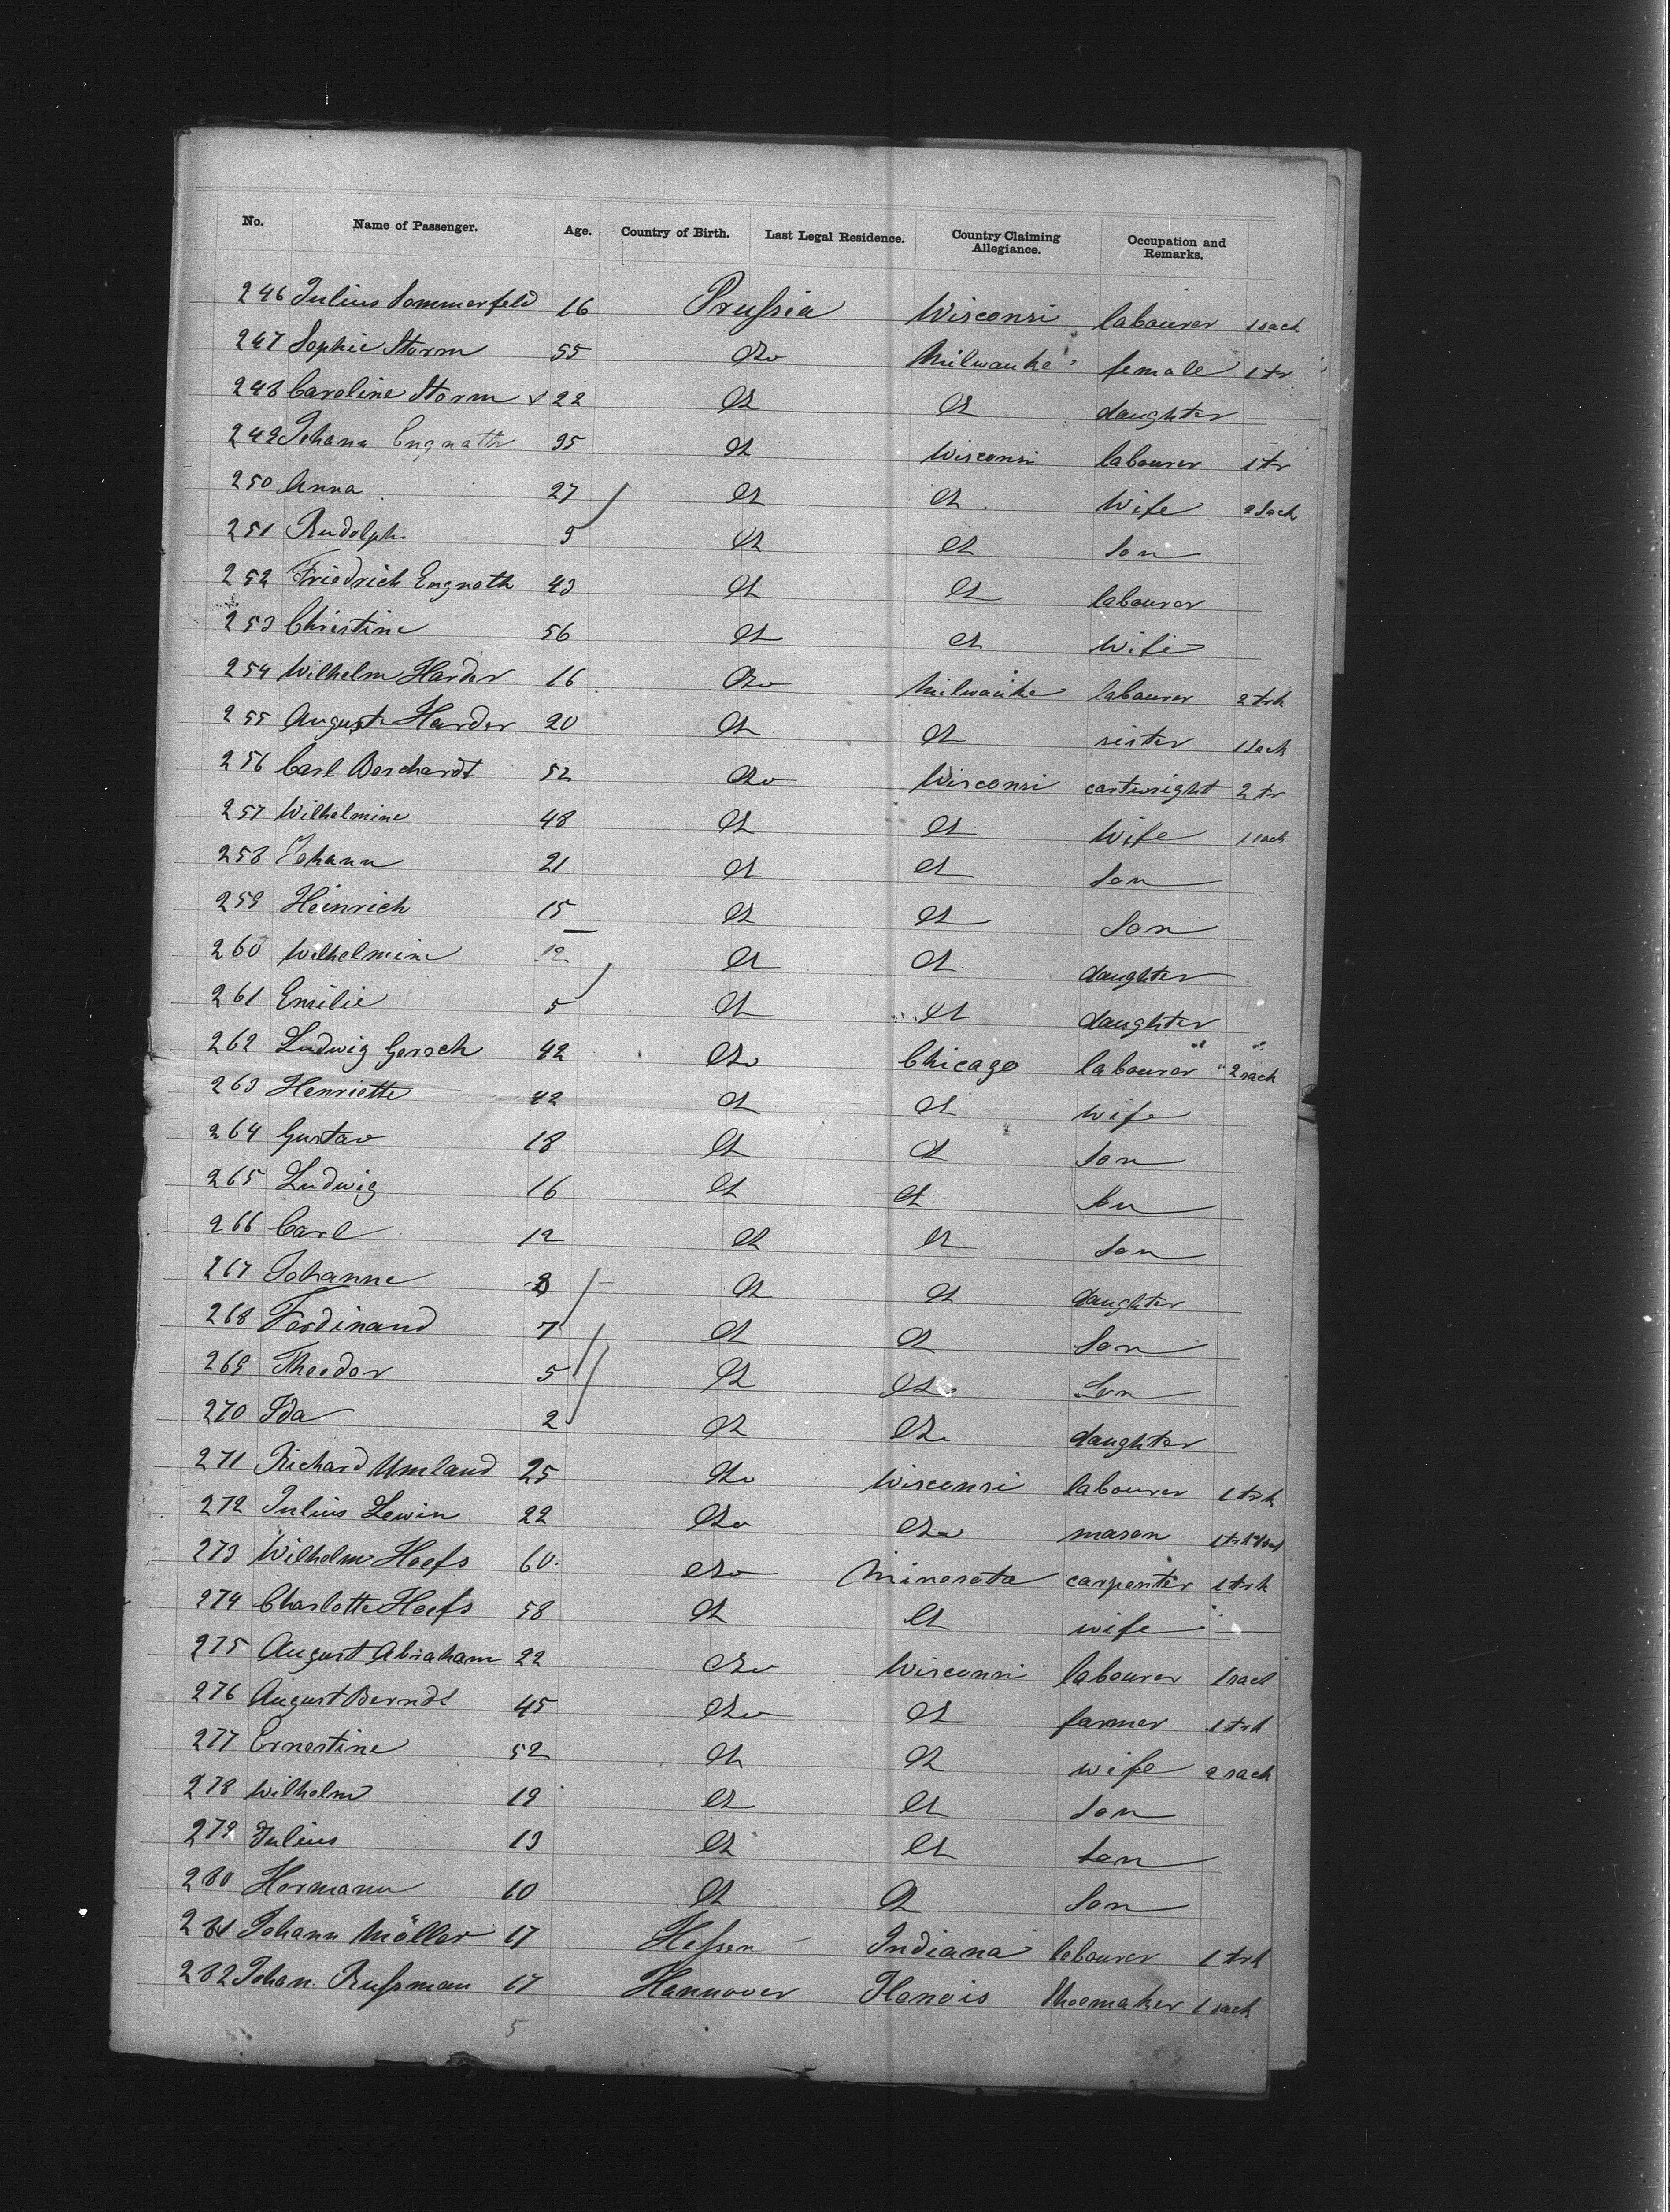 No. Name of Passenger. Age. Country of Birth. Last Legal Residence. Country Claiming Allegiance. Occupation and Remarks.
246 Julius Sommerfeld 16 Prußia Wisconsi labourer 1 sack
247 Sophie Storm 55 do Milwauke female 1 tr
248 Caroline Storm 22 d d daughter —
249 Johann Engnath 35 d Wisconsi labourer 1 tr
250 Anna 27 d d Wife 2 sack
251 Rudolph d d son
252 Friedrich Engnath 43 d d labourer
253 Christine 56 d d Wife
254 Wilhelm Harder 16 do Milwauke labourer 2 trk
255 August Harder 20 d d sister 1 sack
256 Carl Borchardt 52 do Wisconsi cartwright 2 tr
257 Wilhelmine 48 d d Wife 1 sack
258 Johann 21 d d son
259 Heinrich 15 d d son
260 Wilhelmine 12 d d daughter
261 Emilie 5 d d daughter
262 Ludwig Gersch 42 do Chicago labourer 2 sack
263 Henriette 42 d d wife
264 Gustav 18 d d son
265 Ludwig 16 d d son
266 Carl 12 d d son
267 Johanne d d daughter
268 Ferdinand 7 d d son
269 Theodor 5 d do son
270 Ida 2 d do daughter
271 Richard Umland 25 do Wisconsi labourer 1 trk
272 Julius Lewin 22 do do mason 1 trk
273 Wilhelm Hoefs 60 do Minesota carpenter 1 trk
274 Charlotte Hoefs 58 d d wife —
275 August Abraham 22 do Wisconsi labourer 1 sack
276 August Berndt 45 do d farmer 1 trk
277 Ernestine 52 d d wife 2 sack
278 Wilhelm 19 d d son
279 Julius 13 d d son
280 Hermann 10 d d son
281 Johann Möller 17 Heßen Indiana labourer 1 trk
282 Johan. Rußman 17 Hannover Ilenois Shoemaker 1 sack
5